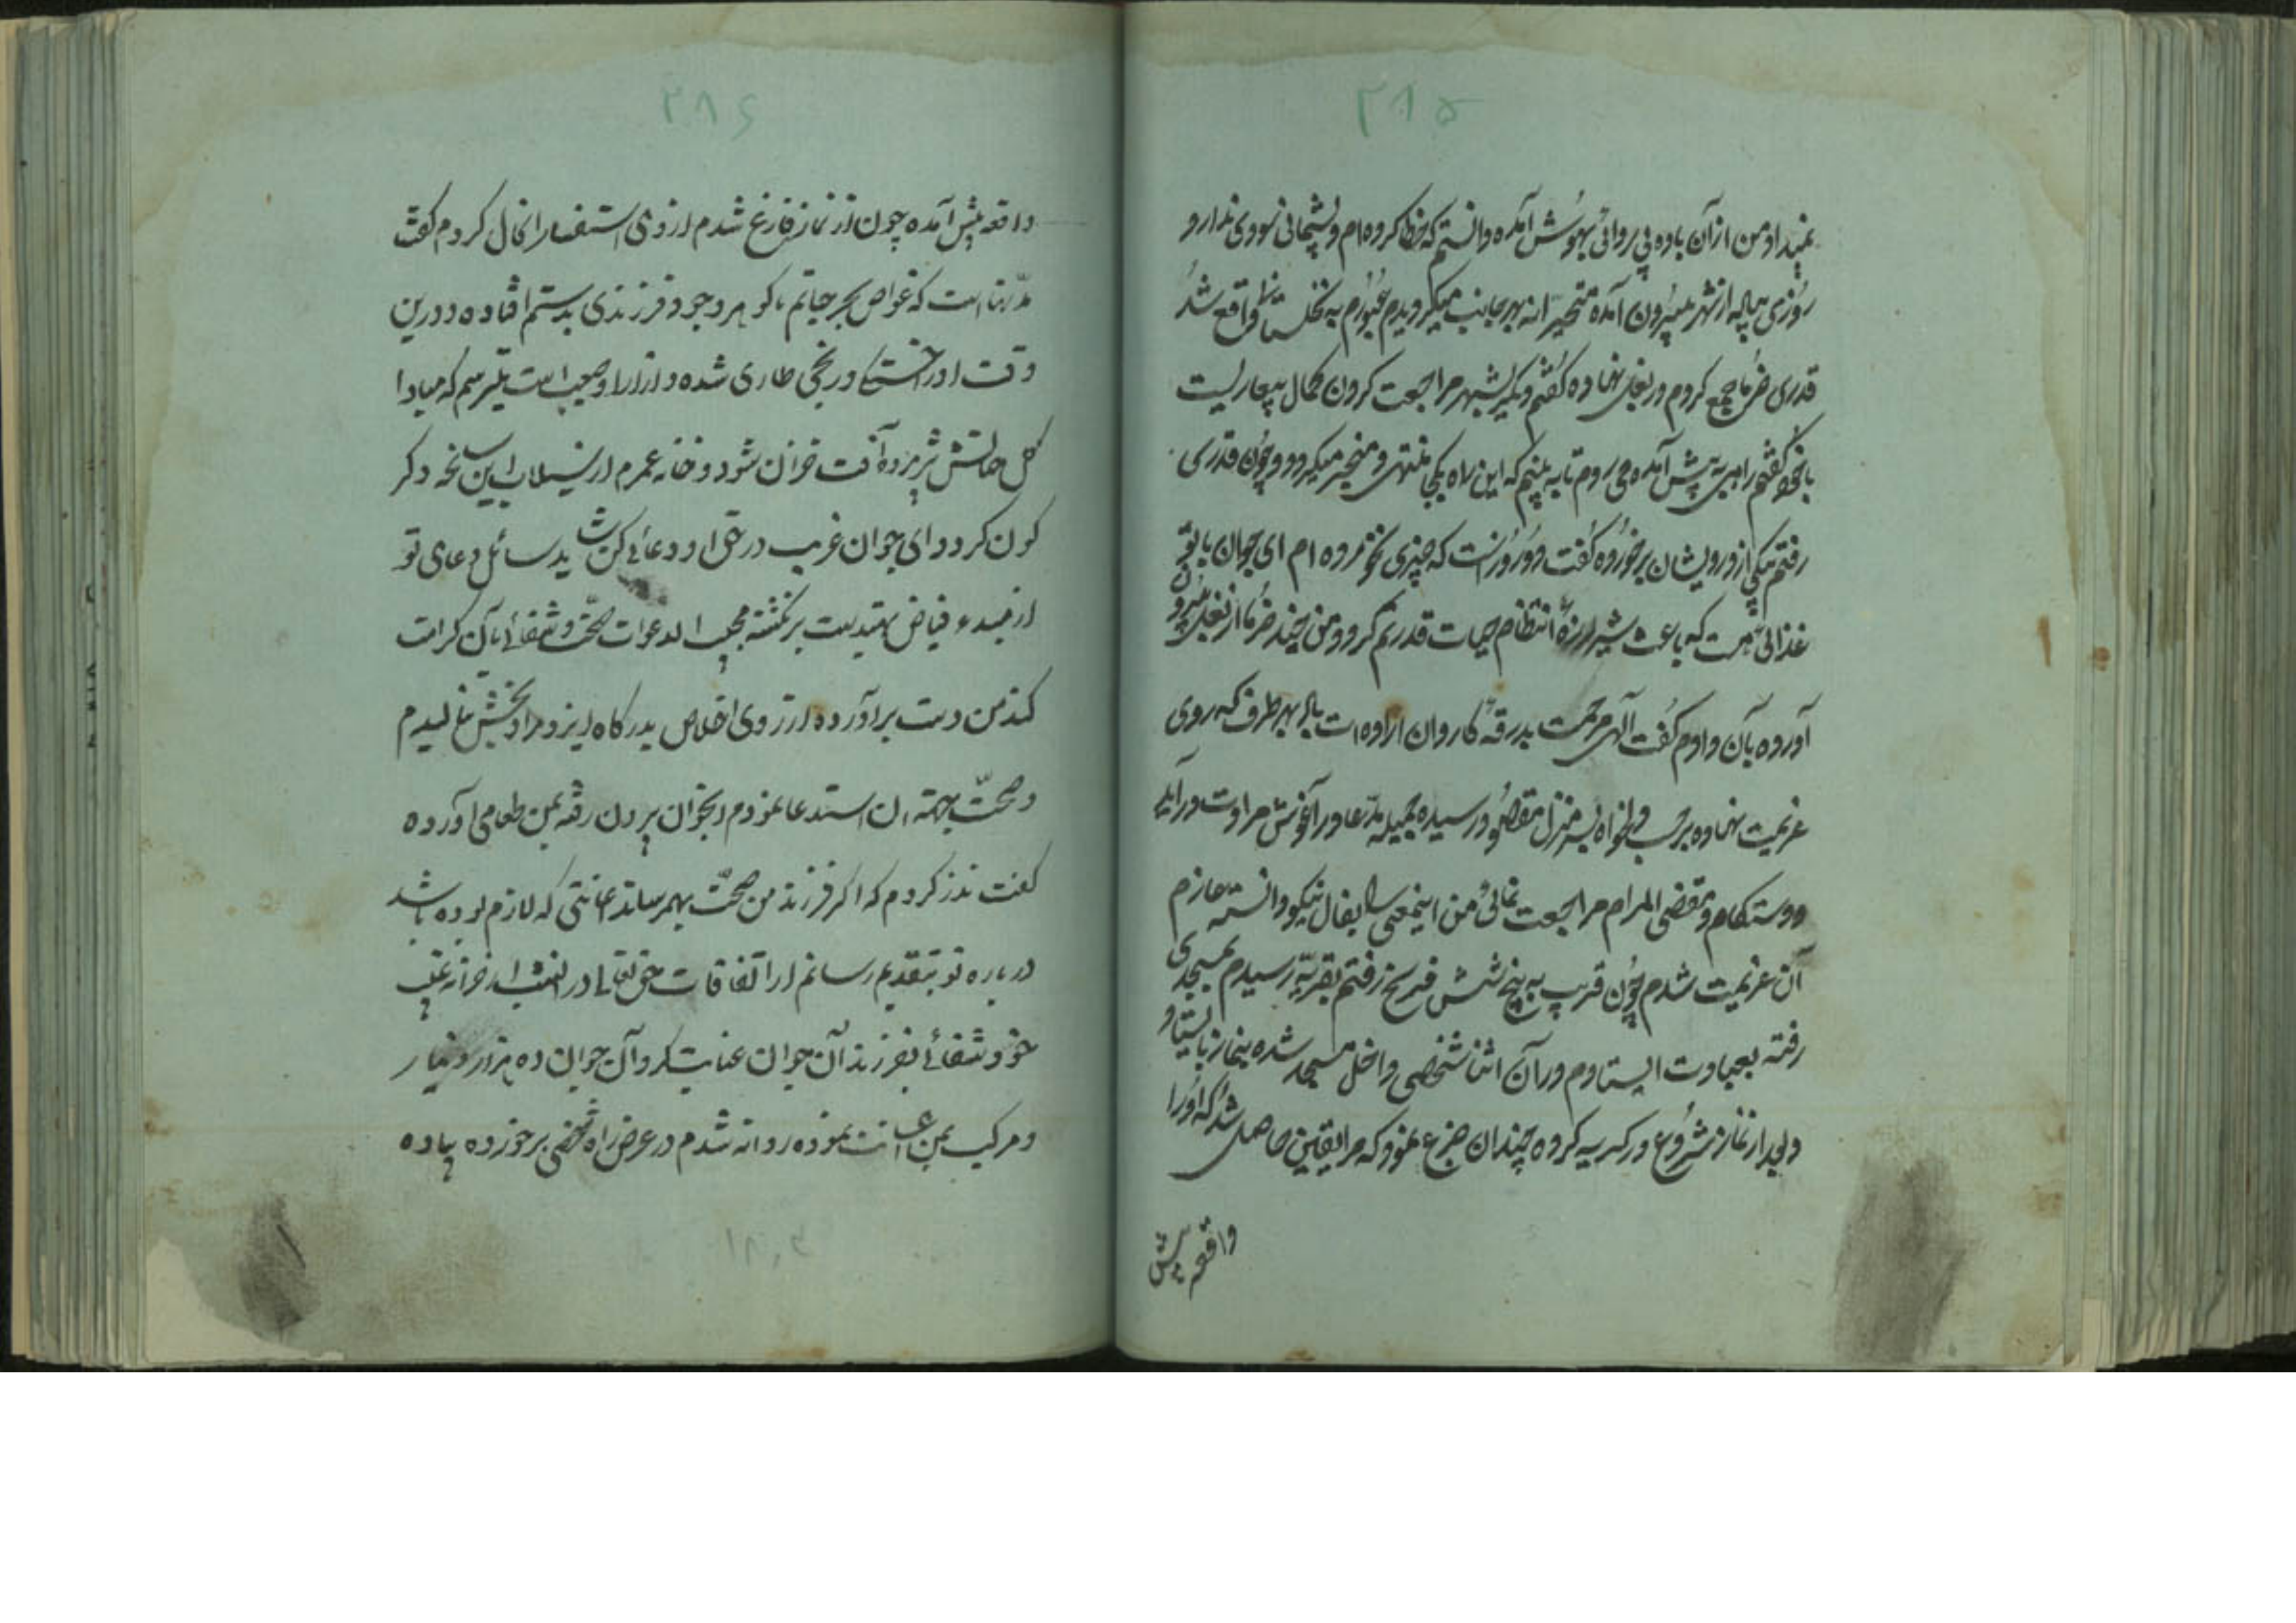 ۲۸۵
او من از آن باده بی پروائی بهوش آمده دانستم که خطا کرده ام و پشیمانی سودی ندارد
روزی پیاله از شهر بیرون آمده متحیرانه بهر جانب میگردیدم عبورم به نخلستانی واقع شد
قدری خرما جمع کردم و در بغل نهاده گفتم دیگر بشهر مراجعت کردن کمال بیعاریست
با خود گفتم راهی به پیش آمده می روم تا به بینم که این راه بکجا منتهی و منجر میگردد و چون قدری
رفتم یکی از درویشان برخورده گفت دو روز است که چیزی نخورده ام ای جوان با تو
غذائی هست که باعث شیرازهٔ انتظام حیات قدرتم گردد من چند خرما از بغل بیرون
آورده بآن دادم گفت آلهی مرحمت بدرقهٔ کاروان اراده ات باد بهر طرف که روی
عزیمت نهاده بر حسب دلخواه بسر منزل مقصود رسیده جمیله مدعا در آغوش مرادت در آید
و دوستکام و مقضی المرام مراجعت نمائی من اینمعنی را بفال نیکو دانسته عازم
آن عزیمت شدم چون قریب به پنج شش فرسخ رفتم بقریه رسیدم بمسجدی
رفته بعبادت ایستادم در آن اثنا شخصی داخل مسجد شده بنماز بایستاد و
و بعد از نماز شروع در گریه کرده چندان جزع نمود که مرا یقین حاصل شد که او را
واقعه پیش
۲۸۶
واقعه پیش آمده چون از نماز فارغ شدم از وی استفسار انحال کردم گفت
مدتها است که غواص بحر حیاتم با گوهر وجود فرزندی بدستم افتاده و درین
وقت او را خستگی و رنجی طاری شده و آزار او صعب است میترسم که مبادا
گل حیاتش پژمرده آفت خزان شود و خانه عمرم از سیلاب این سانحه دگر
گون گردد ای جوان غریب در حق او دعائی کن شاید سائل دعای تو
از مبدء فیاض بهتدیست برنگشته مجیب الدعوات صحت و شفائی بآن کرامت
کند من دست برآورده از روی اخلاص بدرگاه ایزد مراد بخش نالیدم
و صحت بجهته ان استدعا نمودم انجوان بیرون رفته بمن طعامی آورده
گفت نذر کردم که اگر فرزند من صحت بهمرساند اعانتی که لازم بوده باشد
درباره تو بتقدیم رسانم از اتفاقات حق تعالی در انشب از خزانه غیب
خود شفائی بفرزند آن جوان عنایت کرد آن جوان ده هزار دینار
و مرکب بمن اعانت نموده روانه شدم در عرض راه شخصی برخورده پیاده